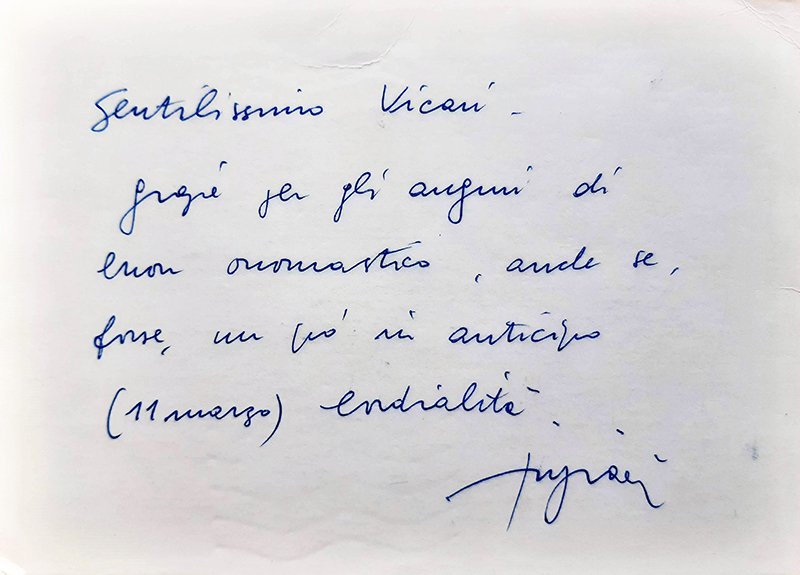 Gentilissimo Vicari -
grazie per gli auguri di
buon onomastico, anche se,
forse, un pó in anticipo
(11 marzo) Cordialità.